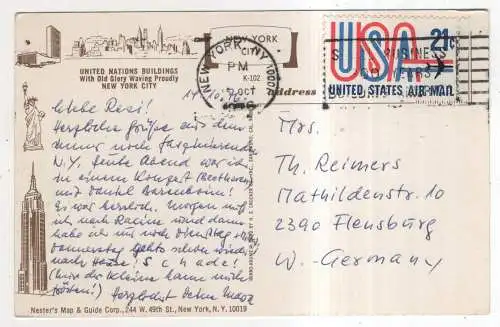 UNITED NATIONS BUILDINGS
With Old Glory Waving Proudly
NEW YORK CITY
NEW YORK CITY
K-102
NEW YORK, NY
PM
OCT
USA 21c
UNITED STATES AIR MAIL
address
Liebe Resi!
Herzliche Grüße aus dem
immer noch faszinierenden
N.Y. Heute Abend war ich
zu einem Konzert (Beethoven
mit Daniel Barenboim!
Es war herrlich. Morgen
ich nach Racine und dann
habe ich nur noch Dienstag
Donnerstag gehts schon wieder
nach Hause! Schade!
(nur der Kleine kann mich
trösten!) Herzlichst Deine
Mrs.
Th. Reimers
Mathildenstr. 10
2390 Flensburg
W.-Germany
Nester's Map & Guide Corp., 244 W. 49th St., New York, N.Y. 10019